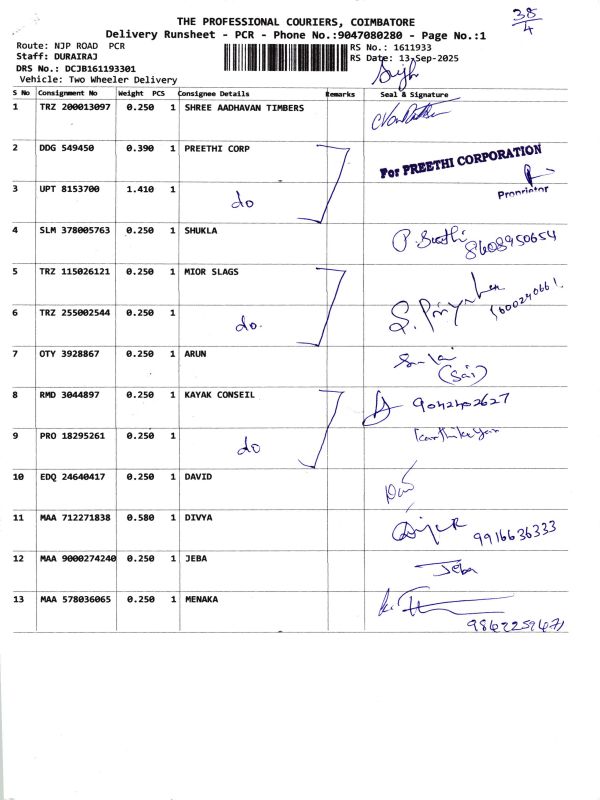 38/4
THE PROFESSIONAL COURIERS, COIMBATORE
Delivery Runsheet - PCR - Phone No.:9047080280 - Page No.:1
Route: NJP ROAD PCR
RS No.: 1611933
Staff: DURAIRAJ
RS Date: 13-Sep-2025
DRS No.: DCJB161193301
Vehicle: Two Wheeler Delivery
S No Consignment No Weight PCS Consignee Details Remarks Seal & Signature
1 TRZ 200013097 0.250 1 SHREE AADHAVAN TIMBERS
2 DDG 549450 0.390 1 PREETHI CORP For PREETHI CORPORATION
3 UPT 8153700 1.410 1 do Proprietor
4 SLM 378005763 0.250 1 SHUKLA 8608950654
5 TRZ 115026121 0.250 1 MIOR SLAGS
6 TRZ 255002544 0.250 1 do.
7 OTY 3928867 0.250 1 ARUN (Sai)
8 RMD 3044897 0.250 1 KAYAK CONSEIL 9042402627
9 PRO 18295261 0.250 1 do Karthikeyan
10 EDQ 24640417 0.250 1 DAVID
11 MAA 712271838 0.580 1 DIVYA 9916636333
12 MAA 9000274240 0.250 1 JEBA Jeba
13 MAA 578036065 0.250 1 MENAKA